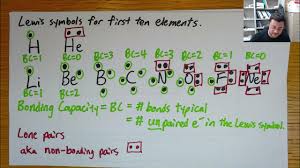 Lewis symbols for first ten elements.
H He
BC=1 BC=0
BC=1 BC=2 BC=3 BC=4 BC=3 BC=2 BC=1 BC=0
Li Be B C N O F Ne
Bonding Capacity = BC = # bonds typical
= # unpaired e⁻ in the Lewis symbol.
Lone pairs
aka non-bonding pairs